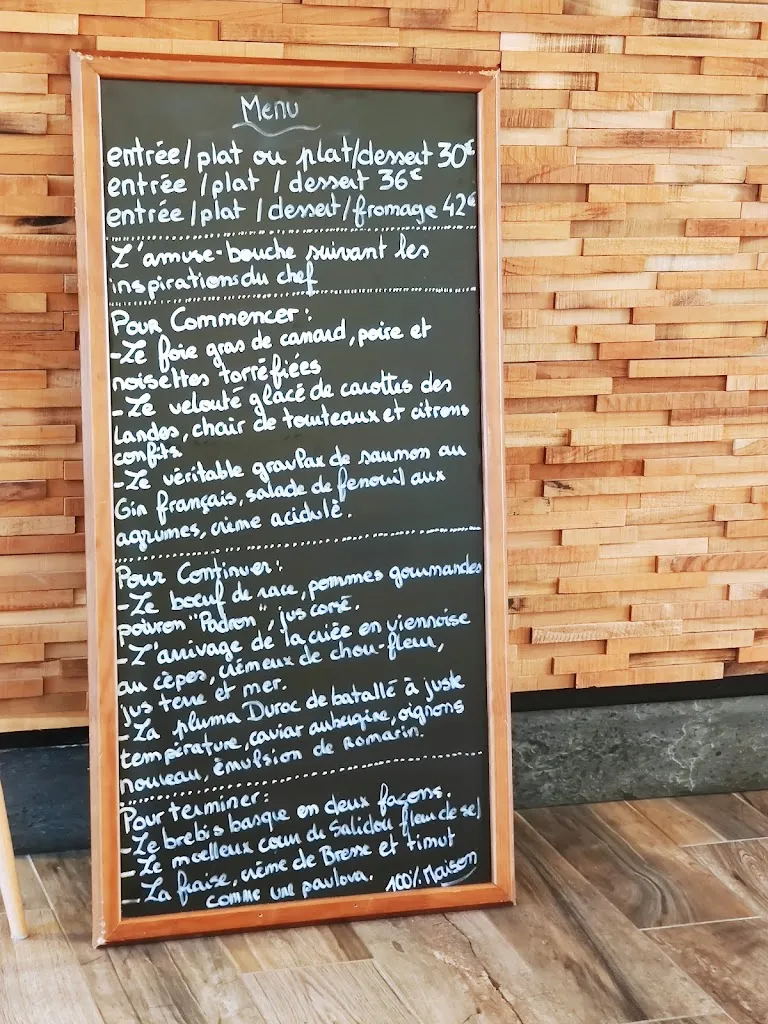 Menu
entrée/plat ou plat/dessert 30€
entrée /plat / dessert 36€
entrée /plat / dessert/fromage 42€
L'amuse-bouche suivant les
inspirations du chef
Pour Commencer:
-Le foie gras de canard, poire et
noisettes torréfiées
-Le velouté glacé de carottes des
Landes, chair de tourteaux et citrons
confits
-Le véritable gravlax de saumon au
Gin français, salade de fenouil aux
agrumes, crème acidulé.
Pour Continuer:
-Le boeuf de race, pommes gourmandes
poivron "Padron", jus corsé.
-L'arrivage de la criée en viennoise
au cèpes, crémeux de chou-fleur,
jus terre et mer.
-La pluma Duroc de batallé à juste
température, caviar aubergine, oignons
nouveau, émulsion de Romarin.
Pour terminer:
-Le brebis basque en deux façons.
-Le moelleux coeur de Salidou fleur de sel
-La fraise, crème de Bresse et timut
comme une pavlova. 100% Maison